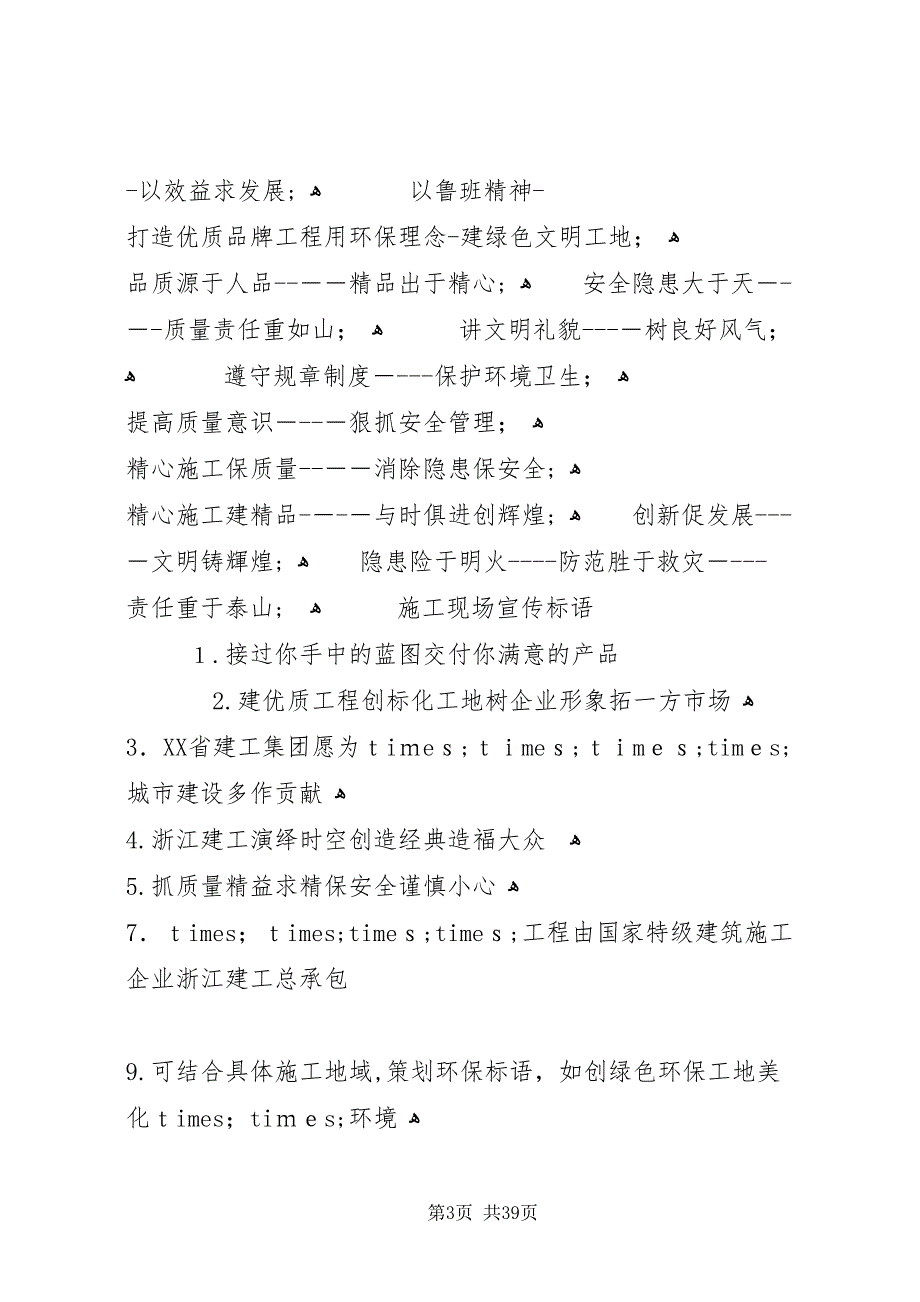 -以效益求发展; ﻫ 以鲁班精神-
打造优质品牌工程用环保理念-建绿色文明工地； ﻫ
品质源于人品--－－精品出于精心; ﻫ 安全隐患大于天－-
－-质量责任重如山； ﻫ 讲文明礼貌---－树良好风气；
ﻫ 遵守规章制度－---保护环境卫生； ﻫ
提高质量意识－--－狠抓安全管理； ﻫ
精心施工保质量--－－消除隐患保安全; ﻫ
精心施工建精品-－-－与时俱进创辉煌; ﻫ 创新促发展---
－文明铸輝煌; ﻫ 隐患险于明火----防范胜于救灾－---
责任重于泰山; ﻫ 施工现场宣传标语
１.接过你手中的蓝图交付你满意的产品
２.建优质工程创标化工地树企业形象拓一方市场 ﻫ
3．XX省建工集团愿为ｔimｅs;ｔimes;ｔimｅｓ;timｅs;
城市建设多作贡献 ﻫ
4.浙江建工演绎时空创造经典造福大众 ﻫ
5.抓质量精益求精保安全谨慎小心 ﻫ
7．ｔimes；ｔimes;timeｓ;timeｓ;工程由国家特级建筑施工
企业浙江建工总承包
9.可结合具体施工地域,策划环保标语，如创绿色环保工地美
化ｔimes；tiｍｅs;环境 ﻫ
第3页 共39页